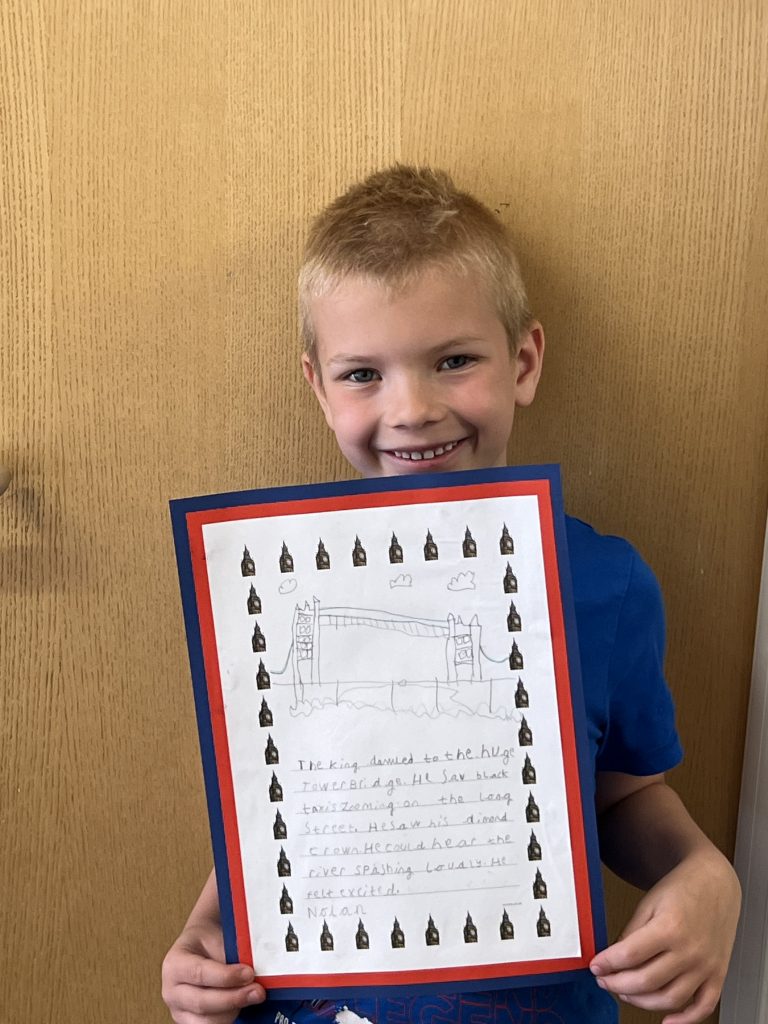 The king dawled to the huge
Tower Bridge. He Saw black
taxis zooming on the Long
Street. He saw his dimond
crown. He could hear the
river spashing Loudly. He
felt excited.
Nolan
LEGEND